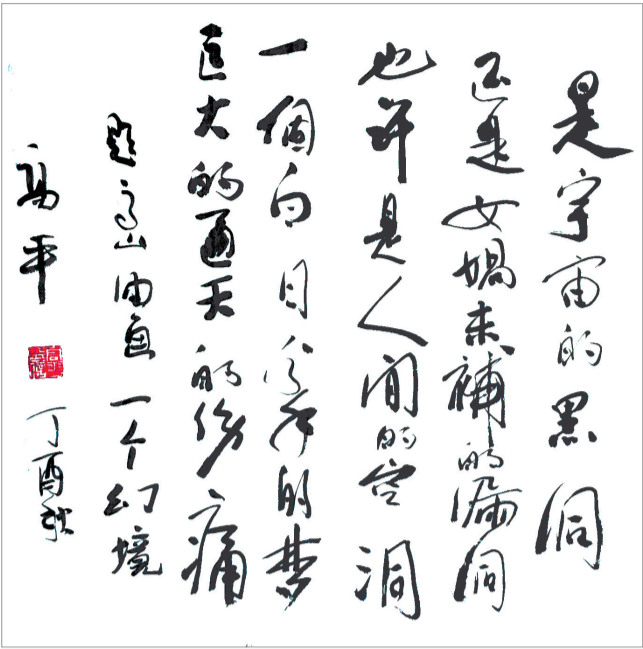 是宇宙的黑洞
还是女娲未補的漏洞
也许是人间的空洞
一個白日飞升的梦
巨大的通天的伤痛
题高山油画一个幻境
高平 丁酉秋